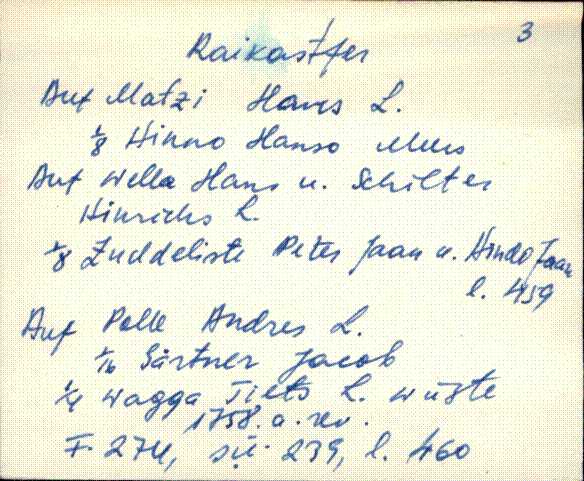 3
Raikastfer
Auf Matzi Hans L.
1/8 Hinno Hanso Mus
Auf Wella Hans u. Schilter
Hinrichs L.
1/8 Zuddeliste Peter Jaan u. Hindo Jaan
l. 459
Auf Polle Andres L.
1/16 Gärtner Jacob
1/4 Wagga Tiets L. wüste
1758. a. rev.
F. 274, sü. 239, l. 460